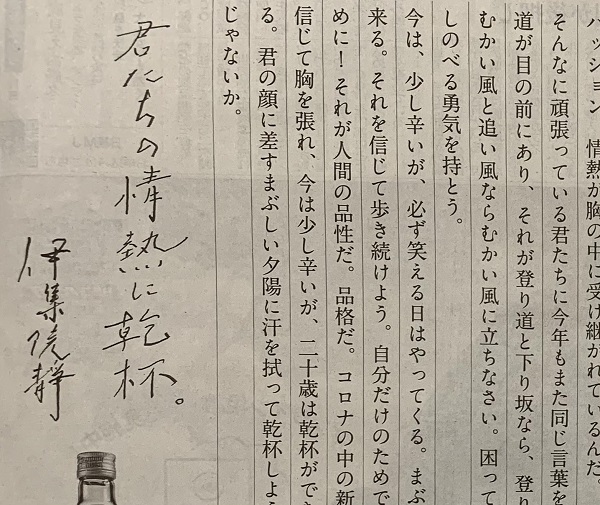 パッション　情熱が胸の中に受け継がれているんだ。
そんなに頑張っている君たちに今年もまた同じ言葉を
道が目の前にあり、それが登り道と下り坂なら、登り
むかい風と追い風ならむかい風に立ちなさい。困って
しのべる勇気を持とう。
今は、少し辛いが、必ず笑える日はやってくる。まぶ
来る。それを信じて歩き続けよう。自分だけのためで
めに！それが人間の品性だ。品格だ。コロナの中の新
信じて胸を張れ、今は少し辛いが、二十歳は乾杯ができ
る。君の顔に差すまぶしい夕陽に汗を拭って乾杯しよう
じゃないか。
君たちの情熱に乾杯。
伊集院静